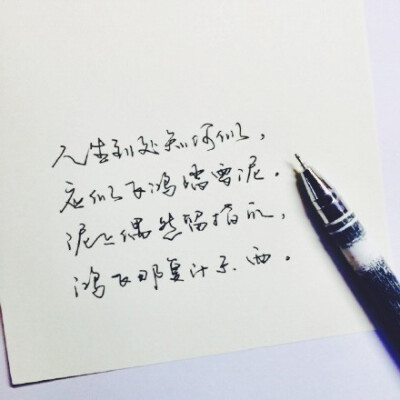 人生到处知何似，
应似飞鸿踏雪泥。
泥上偶然留指爪，
鸿飞那复计东西。